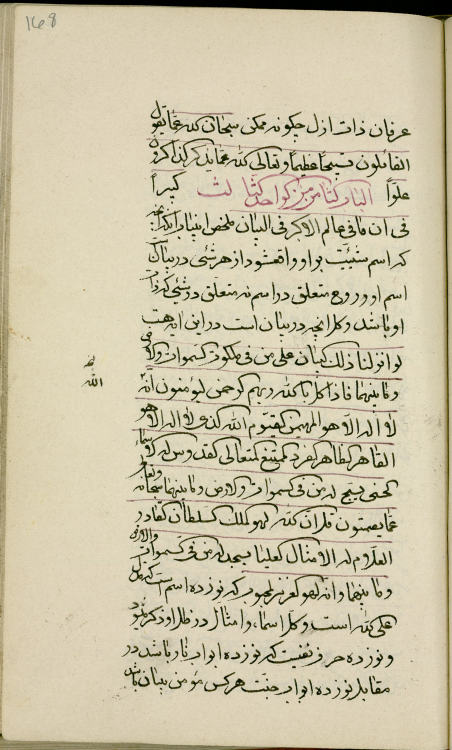 168
عرفان ذات ازل چگونه ممکن سبحان الله عما یقول
القائلون تسبیحا عظیما و تعالی الله عما یذکر الذاکرون
علوا الباب الثامن من الواحد الثالث کبیرا
فی ان ما فی عالم الاکبر فی البیان ملخص این باب آنکه
که اسم شیئیت بر او واقع شود از هر شیئ در بیان
اسم او و روح متعلق در اسم نه متعلق در شیئ که ذات
او باشد و کل آنچه در بیان است در این آیه هست
لو انزلنا ذلک البیان علی من فی ملکوت السموات والارض
وما بینهما فاذا کل بالله ربهم الرحمن لیؤمنون الله
لا اله الا هو المهیمن القیوم الله الذی لا اله الا هو
القاهر الظاهر الفرد الممتنع المتعالی القدوس له الاسماء
الحسنی یسبح له من فی السموات والارض وما بینهما سبحانه وتعالی
عما یصفون قل ان الله لهو الملک السلطان القادر
العلام له الامثال العلیا یسجد له من فی السموات والارض
وما بینهما وانه لهو العزیز المحبوب که نوزده اسم
علی الله است و کل اسماء و امثال در ظل او ذکر میشود
و نوزده حرف نفی است که نوزده ابواب نار باشد در
مقابل نوزده ابواب جنت هر کس مؤمن ببیان باشد
الله